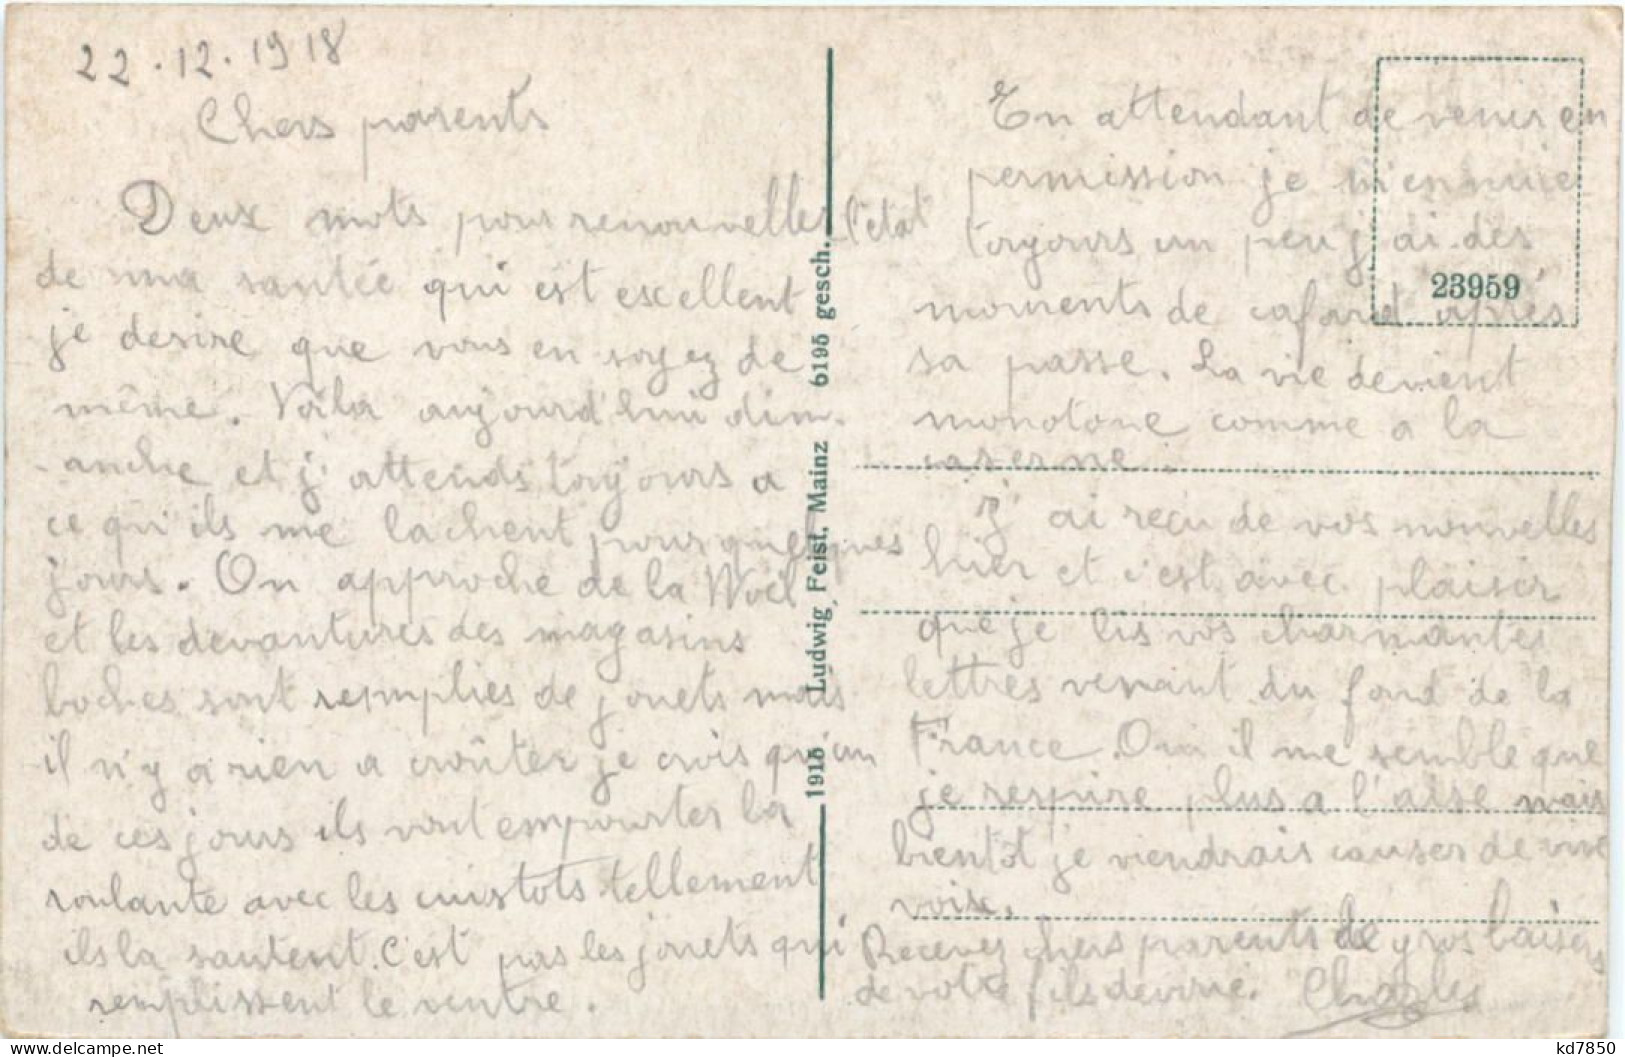 22.12.1918
Chers parents
Deux mots pour renouveller l'etat
de ma santée qui est excellent
je desire que vous en soyez de
même. Voila aujourd'hui dim-
-anche et j'attends toujours a
ce qu'ils me lachent pour quelques
jours. On approche de la Noël
et les devantures des magasins
boches sont remplies de jouets mais
il n'y a rien a croûter je crois qu'un
de ces jours ils vont empourter la
roulante avec les cuistots tellement
ils la sautent. C'est pas les jouets qui
remplissent le ventre.
1915 Ludwig Feist, Mainz 6195 gesch.
23959
En attendant de venir en
permission je m'ennuie
toujours un peu j'ai des
moments de cafard après
sa passe. La vie devient
monotone comme a la
caserne.
J'ai reçu de vos nouvelles
hier et c'est avec plaiser
que je lis vos charmantes
lettres venant du fond de la
France. Oui il me semble que
je respire plus a l'aise mais
bientôt je viendrais causer de vive
voix.
Recevez chers parents de gros baisers
de votre fils devoué. Charles
kd7850